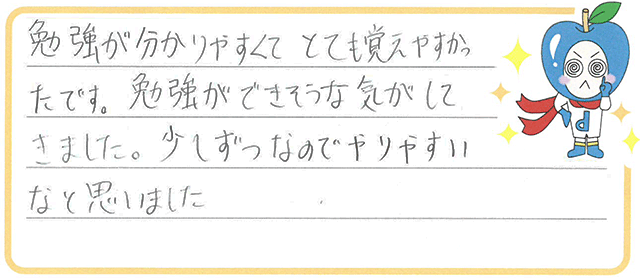 勉強が分かりやすくて とても覚えやすかっ
たです。勉強ができそうな気がして
きました。少しずつなのでやりやすい
なと思いました
d